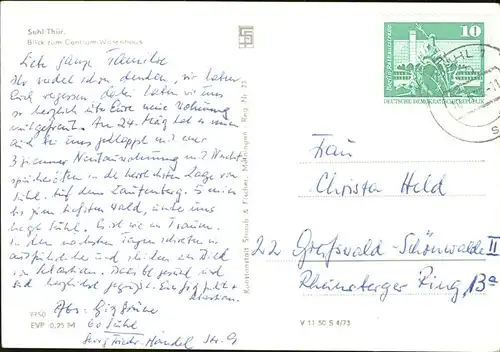 Suhl/Thür.
Blick zum Centrum-Warenhaus
Liebe ganze Familie
Ihr werdet schon denken, wir haben
Euch vergessen, dabei haben wir uns
so herzlich über Eure neue Wohnung
mitgefreut. Am 24. hat es nun
auch bei uns geklappt mit einer
3 Zimmer Neubauwohnung mit Nacht-
speicheröfen in der herrlichsten Lage von
Suhl. Auf dem Lautenberg. 5 min
bis zum tiefsten Wald, unter uns
liegt Suhl. Es ist wie ein Traum.
In den nächsten Tagen schreiben wir
ausführliche und ein Bild
von Sebastian. Bleibt gesund und
seid herzlichst gegrüßt.
Sebastian.
Abs:
60 Suhl
Georg-Friedr.-Händel Str. 9
9750
EVP 0,95 M
Kunstanstalt Straub & Fischer, Meiningen · Reg.-Nr. 23
10
DEUTSCHE DEMOKRATISCHE REPUBLIK
SUHL 1
Frau
Christa Held
22 Greifswald-Schönwalde II
Rheinsberger Ring 13a
V 11 50 S 4/73